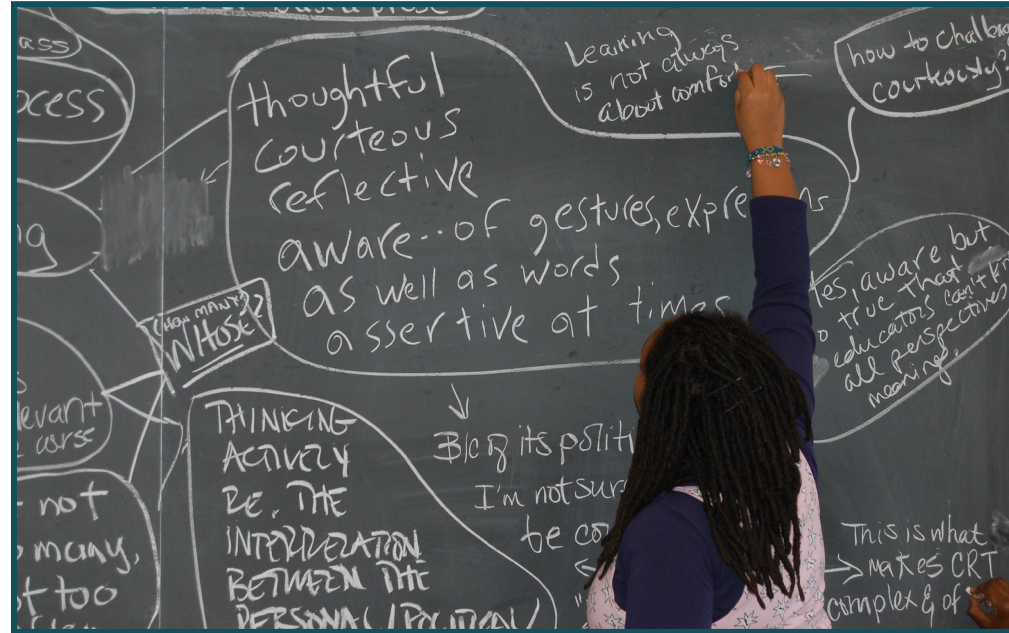 ass
ocess
thoughtful
courteous
reflective
aware... of gestures, expre ns
as well as words
assertive at times
Learning
is not always
about comfor
how to challen
courteously?
Yes, aware but
true that
educators can't
all perspectives
meaning.
HOW MANY?
WHOSE?
levant
not
many,
too
THINKING
ACTIVELY
RE. THE
INTERRELATION
BETWEEN THE
PERSONAL/POLITICAL
B/c of its politi
I'm not sur
be co
This is what
makes CRT
complex & of